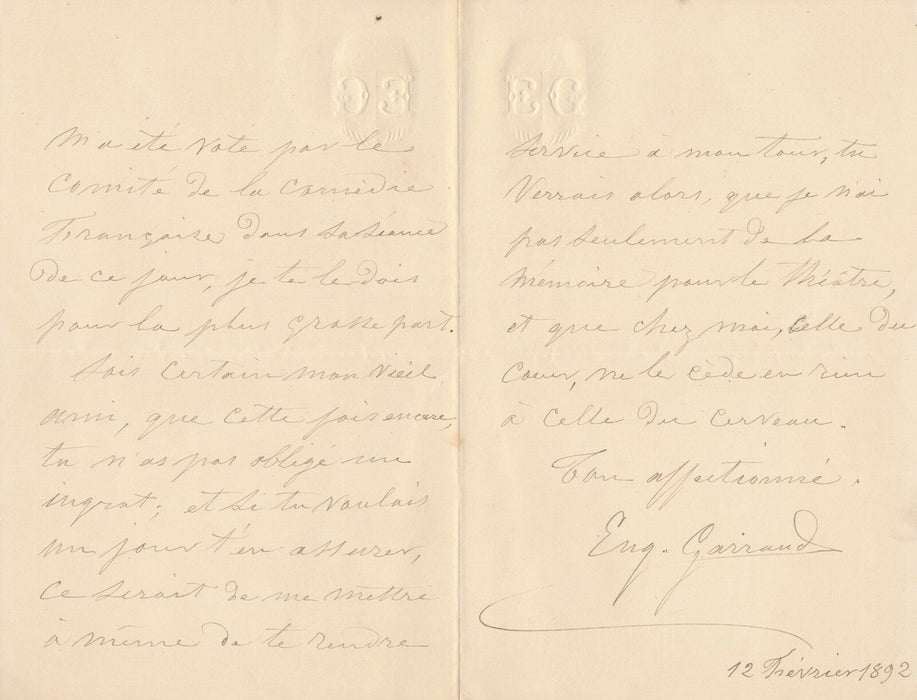 m'a été voté par le
Comité de la Comédie
Française dans sa séance
de ce jour, je te le dois
pour la plus grosse part.
Sois certain mon vieil
ami, que cette fois encore,
tu n'as pas obligé un
ingrat; et si tu voulais
un jour t'en assurer,
ce serait de me mettre
à même de te rendre
EG
service à mon tour, tu
verrais alors, que je n'ai
pas seulement de la
mémoire pour le théâtre,
et que chez moi, celle du
Cœur, ne le cède en rien
à celle du cerveau.
Ton affectionné.
Eug. Garraud
12 Février 1892